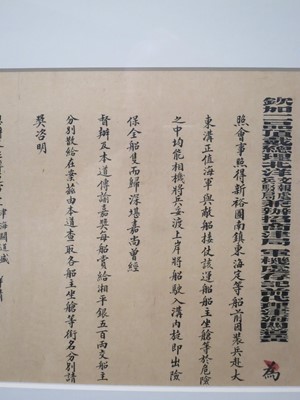 欽加二品頂戴總理
為
照會事照得新裕圖南鎮東海定等船前因裝兵赴大
東溝正值海軍與敵船接仗該運船船主坐艙等於危險
之中均能相機將兵妥渡上岸將船駛入溝內旋即出險
保全船隻而歸深堪嘉尚曾經
督辦及本道傳諭嘉獎每船賞給湘平銀五百両交船主
分別散給在案茲由本道查取各船主坐艙等銜名分別請
獎咨明
津海關道盛